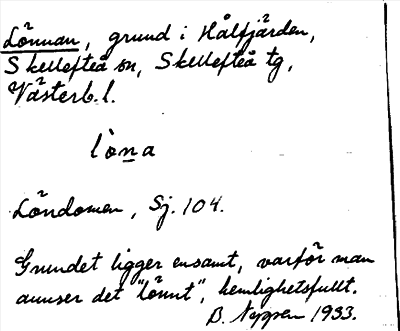 Lönnan, grund i Hålfjärden,
Skellefteå sn, Skellefteå tg,
Västerb. l.
lòna
Löndomen, Sj. 104.
Grundet ligger ensamt, varför man
anser det "lönnt", hemlighetsfullt.
B. 1933.